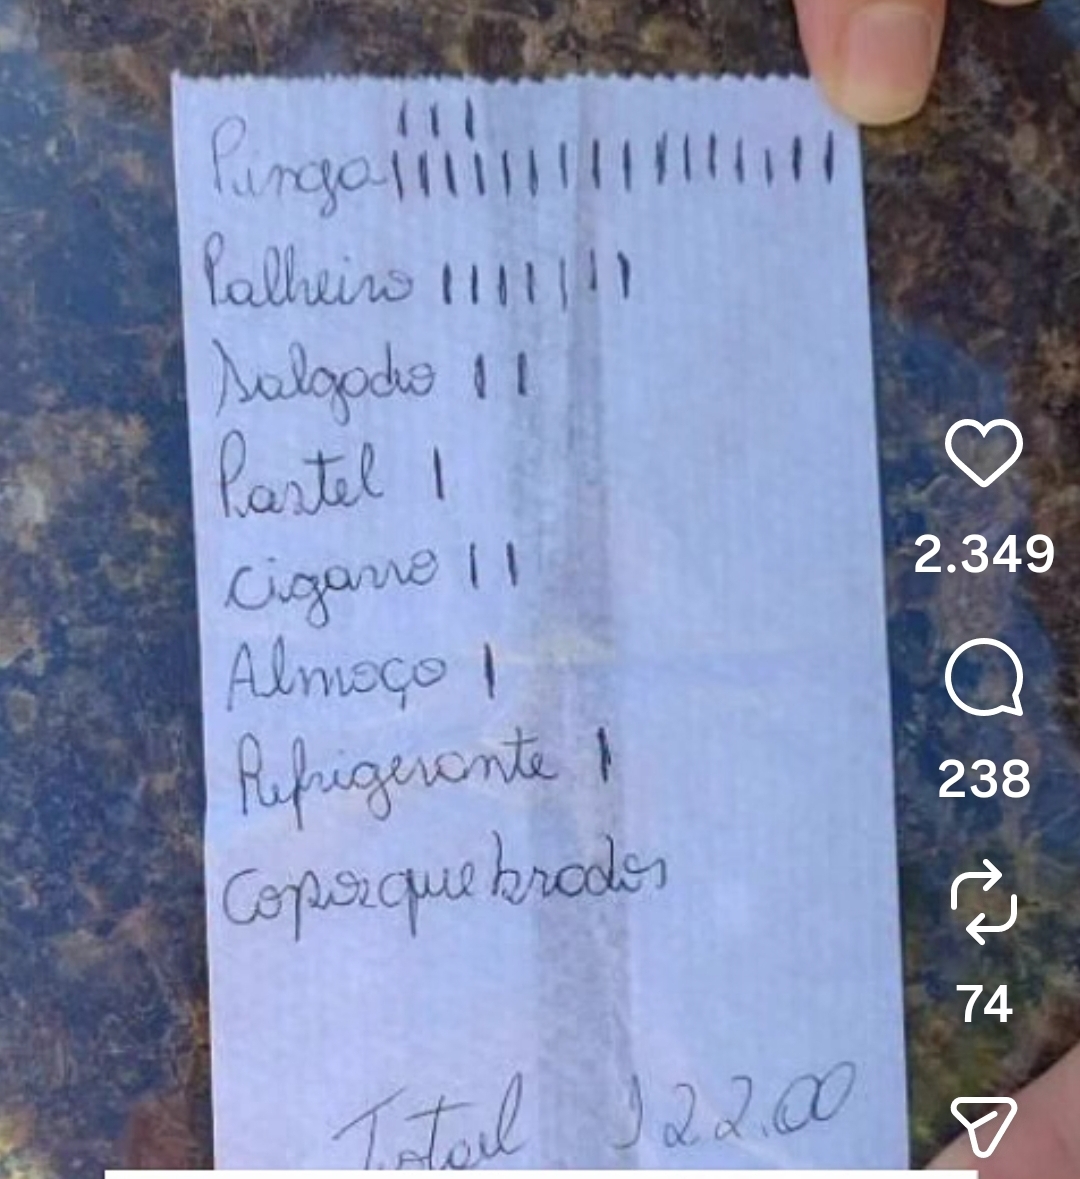 | | |
Pinga | | | | | | | | | | | | | | | |
Palheiro | | | | | | |
Salgado | |
Pastel |
Cigarro | |
Almoço |
Refrigerante |
Copos quebrados
Total 122.00
2.349
238
74